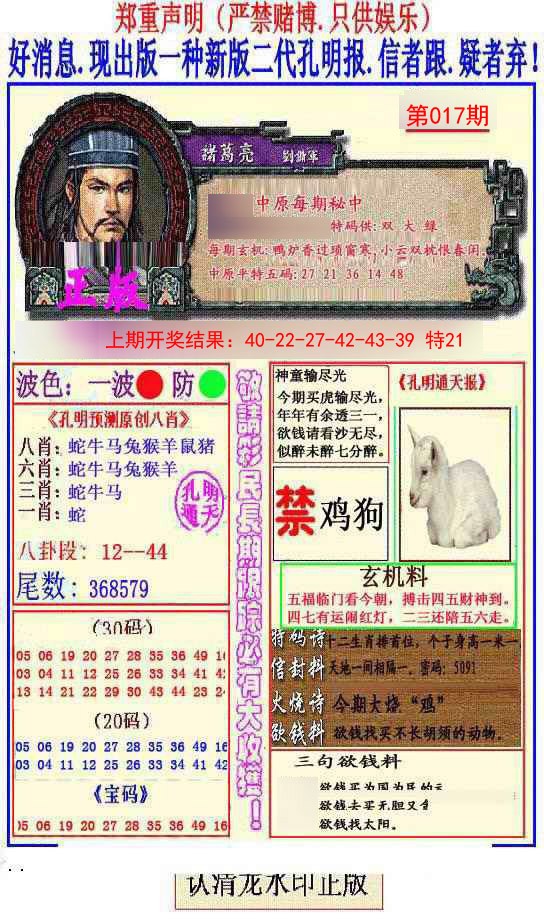 郑重声明（严禁赌博.只供娱乐）
好消息.现出版一种新版二代孔明报.信者跟.疑者弃!
第017期
諸葛亮 劉備軍
中原每期秘中
特码供: 双 大 绿
每期玄机: 鸭炉香过琐窗寒,小云双枕恨春闲.
中原平特五码: 27 21 36 14 48
正版
上期开奖结果: 40-22-27-42-43-39 特21
波色: 一波 防
《孔明预测原创八肖》
八肖: 蛇牛马兔猴羊鼠猪
六肖: 蛇牛马兔猴羊
三肖: 蛇牛马
一肖: 蛇
孔明
通天
八卦段: 12--44
尾数: 368579
(30码)
05 06 19 20 27 28 35 36 49
03 04 11 12 25 26 33 34 41 42
13 14 21 22 29 30 43 44 23
(20码)
05 06 19 20 27 28 35 36 49
03 04 11 12 25 26 33 34 41 42
《宝码》
05 06 19 20 27 28 35 36 49
敬請彩民長期跟踪必有大收獲!
神童输尽光
今期买虎输尽光,
年年有余透三一,
欲钱请看沙无尽,
似醉未醉七分醉。
《孔明通天报》
禁 鸡狗
玄机料
五福临门看今朝, 搏击四五财神到。
四七有运闹红灯, 二三还陪五六走。
特码诗 十二生肖排首位, 个子身高一米一
信封料 天地一间相隔一. 密码: 5091
火烧诗 今期大烧“鸡”
欲钱料 欲钱找买不长胡须的动物.
三句欲钱料
欲钱买为国为民的
欲钱去买无胆又
欲钱找太阳。
认清龙水印正版